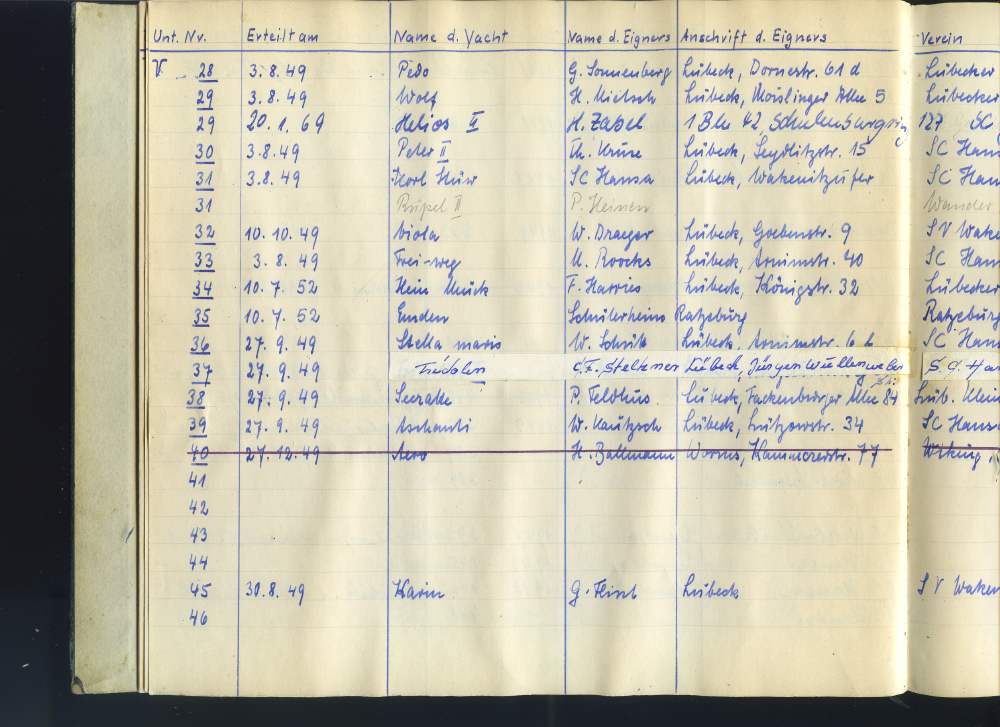 Unt. Nr. Erteilt am Name d. Yacht Name d. Eigners Anschrift d. Eigners Verein
V 28 3.8.49 Pedo G. Sonnenberg Lübeck, Dornestr. 61 d Lübecker
29 3.8.49 Wolf H. Lübeck, Moislinger Allee 5 Lübecker
29 20.1.69 Helios II H. Zabel 1 Bln 42, Schulenburgring 127 SC
30 3.8.49 Peter II Th. Kruse Lübeck, Seydlitzstr. 15 SC Han
31 3.8.49 SC Hansa Lübeck, Wakenitzufer SC Han
31 Rüpel II P. Heinen Wander
32 10.10.49 Viola W. Draeger Lübeck, Goebenstr. 9 SV Wake
33 3.8.49 Frei-weg U. Roocks Lübeck, Arnimstr. 40 SC Han
34 10.7.52 Hein Mück F. Harries Lübeck, Königstr. 32 Lübecker
35 10.7.52 Emden Schülerheim Ratzeburg Ratzeburg
36 27.9.49 Stella maris W. Lübeck, Arnimstr. SC Han
37 27.9.49 Lübeck, Jürgen Wullenweber S.C. Ha
38 27.9.49 P. Feldhus Lübeck, Fackenburger Allee 84 Lüb.
39 27.9.49 Aschanti W. Kautzsch Lübeck, Lützowstr. 34 SC Hansa
40 27.12.49 Aero H. Ballmann Worms, Kämmererstr. 77 Wiking
41
42
43
44
45 30.8.49 Karin G. Flint Lübeck SV Waken
46